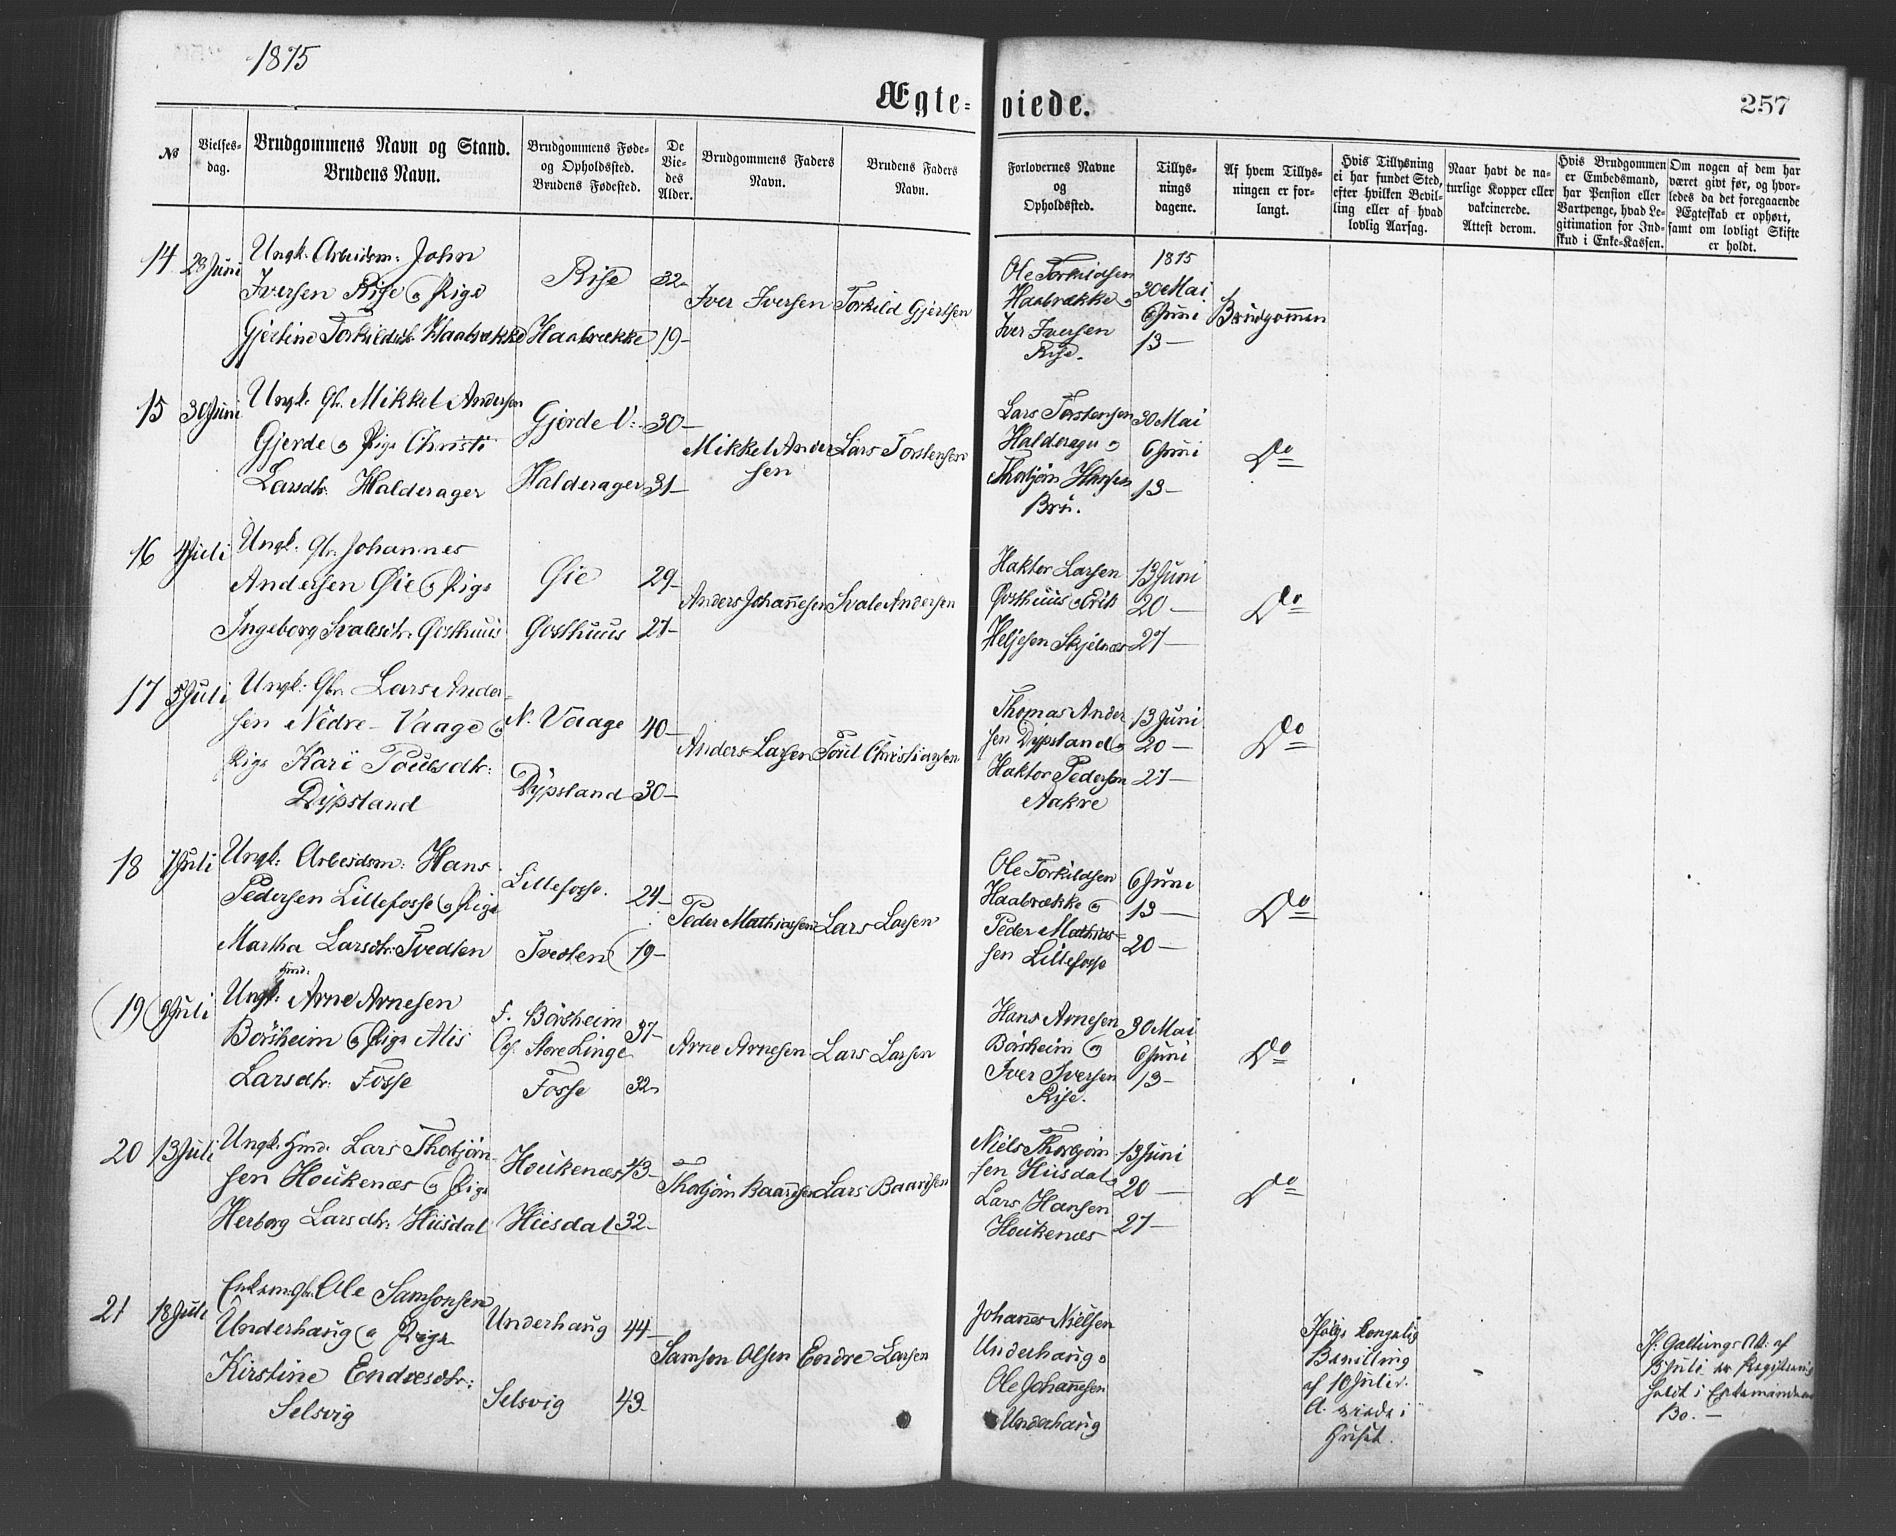 1875
257
Ægte-viede.
№
Vielses-dag.
Brudgommens Navn og Stand.
Brudens Navn.
Brudgommens Føde-
og Opholdssted.
Brudens Fødested.
De
Vie-
des
Alder.
Brudgommens Faders
Navn.
Brudens Faders
Navn.
Forlovernes Navne
og
Opholdssted.
Tillys-
nings
dagene.
Af hvem Tillys-
ningen er for-
langt.
Hvis Tillysning
ei har fundet Sted,
efter hvilken Bevil-
ling eller af hvad
lovlig Aarsag.
Naar havt de na-
turlige Kopper eller
vakcinerede.
Attest derom.
Hvis Brudgommen
er Embedsmand,
har Pension eller
Vartpenge, hvad Le-
gitimation for Ind-
skud i Enke-Kassen.
Om nogen af dem har
været givt før, og hvor-
ledes da det foregaaende
Ægteskab er ophørt,
samt om lovligt Skifte
er holdt.
14
28 Juni
Ungk. Arbeidsm: John
Iversen Rise og Pige
Gjertine Torkildsdtr. Haabrække
Rise
Haabrække
32-
19-
Iver Iversen
Torkild Gjertsen
Ole Torkildsen
Haabrække og
Iver Iversen
Rise.
1875
30 Mai
6 Juni
13 —
Brudgommen
15
30 Juni
Ungk. Gbr. Mikkel Andersen
Gjerde og Pige Christi
Larsdtr. Halderager
Gjerde V:
Halderager
30-
31-
Mikkel Ander
sen
Lars Torstensen
Lars Torstensen
Halderager og
Thorbjørn Hansen
Bru.
30 Mai
6 Juni
13 —
Do
16
4 Juli
Ungk: Gbr. Johannes
Andersen Øie og Pige
Ingeborg Svalesdtr. Qvithuus
Øie
29-
27-
Anders Johannesen
Svale Andersen
Haktor Larsen
Heljesen Skjelnæs
13 Juni
20 —
27 —
Do
17
5 Juli
Ungk: Gbr. Lars Ander-
sen Nedre-Vaage og
Pige Kari Poulsdtr:
Dypsland
N. Vaage
Dypsland
40-
30-
Anders Larsen
Poul Christiansen
Thomas Ander
sen Dypsland og
Haktor Pedersen
Aakre
13 Juni
20 —
27 —
Do
18
7 Juli
Ungk: Arbeidsm: Hans
Pedersen Lillefosse og Pige
Martha Larsdtr. Tvedten
Lillefosse.
Tvedten
24-
19-
Peder Mathiassen
Lars Larsen
Ole Torkildsen
Haabrække og
Peder Mathias-
sen Lillefosse
6 Juni
13 —
20 —
Do
19
9 Juli
Hmd:
Ungk: Arne Arnesen
Börsheim og Pige Alis
Larsdtr. Fosse
F. Börsheim
Op. Store Linge
Fosse
37-
32-
Arne Arnesen
Lars Larsen
Hans Arnesen
Börsheim og
Iver Iversen
Rise.
30 Mai
6 Juni
13 —
Do
20
13 Juli
Ungk. Hmd. Lars Thorbjørn-
sen Houkenæs og Pige
Herborg Larsdtr. Huusdal
Houkenæs
Huusdal
43-
32-
Thorbjørn Baardsen
Lars Baardsen
Niels Thorbjørn
sen Huusdal og
Lars Hansen
Houkenæs
13 Juni
20 —
27 —
Do
21
18 Juli
Enkem. Gbr. Ole Samsonsen
Underhaug og Pige
Kirstine Endresdtr:
Selsvig
Underhaug
Selsvig
44-
43-
Samson Olsen
Endre Larsen
Johannes Nielsen
Underhaug og
Ole Johannesen
Underhaug
Ifølge kongelig
Bevilling
af 10 Juli d.
A. viede i
Huset.
Bo. —